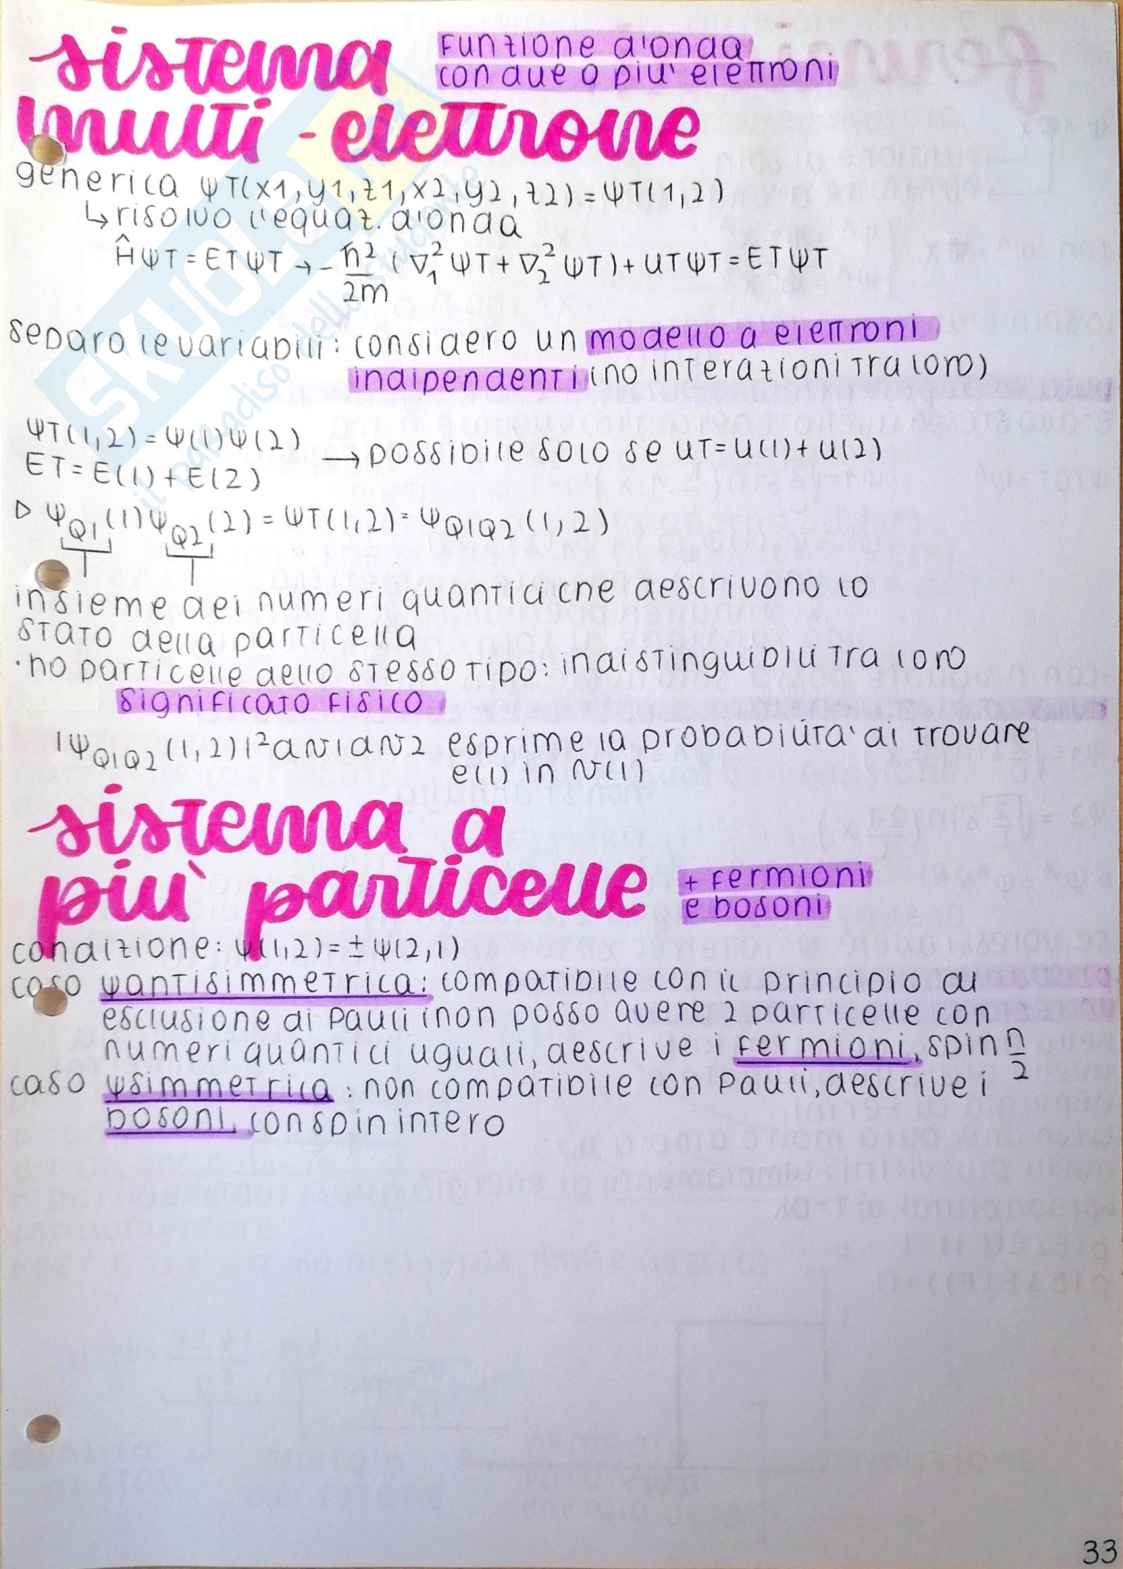 sistema
multi-elettrone
Funzione d'onda
con due o più elettroni
generica ΨT(x1,y1,z1,x2,y2,z2)=ΨT(1,2)
↳ risolvo l'equaz. d'onda
ĤΨT=ETΨT → -ħ²/2m (∇₁²ΨT+∇₂²ΨT)+UTΨT=ETΨT
separo le variabili: considero un modello a elettroni
indipendenti (no interazioni tra loro)
ΨT(1,2)=Ψ(1)Ψ(2)
ET=E(1)+E(2)
→ possibile solo se UT=U(1)+U(2)
▷ Ψ_Q1(1)Ψ_Q2(2)=ΨT(1,2)=Ψ_Q1Q2(1,2)
insieme dei numeri quantici che descrivono lo
stato della particella
·ho particelle dello stesso tipo: indistinguibili tra loro
significato fisico
|Ψ_Q1Q2(1,2)|²dv1dv2 esprime la probabilità di trovare
e(1) in v(1)
sistema a
più particelle
+ fermioni
e bosoni
condizione: Ψ(1,2)=±Ψ(2,1)
caso Ψantisimmetrica: compatibile con il principio di
esclusione di Pauli (non posso avere 2 particelle con
numeri quantici uguali, descrive i fermioni, spin n/2
caso Ψsimmetrica: non compatibile con Pauli, descrive i
bosoni, con spin intero
33
SKUOLA
il paradiso dello studente